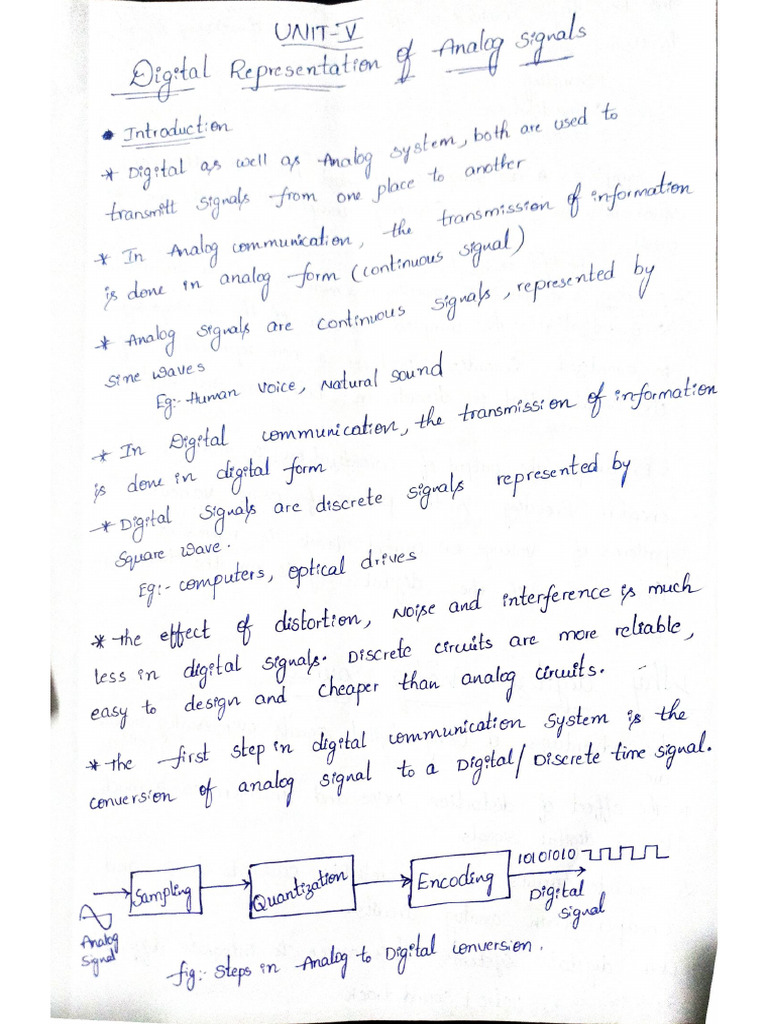 UNIT-V
Digital Representation of Analog Signals
• Introduction
* Digital as well as Analog system, both are used to
transmitt signals from one place to another
* In Analog communication, the transmission of information
is done in analog form (continuous signal)
* Analog signals are continuous signals, represented by
sine waves
Eg:- Human voice, Natural sound
* In Digital communication, the transmission of information
is done in digital form
* Digital signals are discrete signals represented by
square wave.
Eg:- computers, optical drives
* the effect of distortion, Noise and interference is much
less in digital signals. Discrete circuits are more reliable,
easy to design and cheaper than analog circuits.
* the first step in digital communication system is the
conversion of analog signal to a Digital/Discrete time signal.
Analog
signal
Sampling
Quantization
Encoding
10101010
Digital
signal
fig:- steps in Analog to Digital conversion.